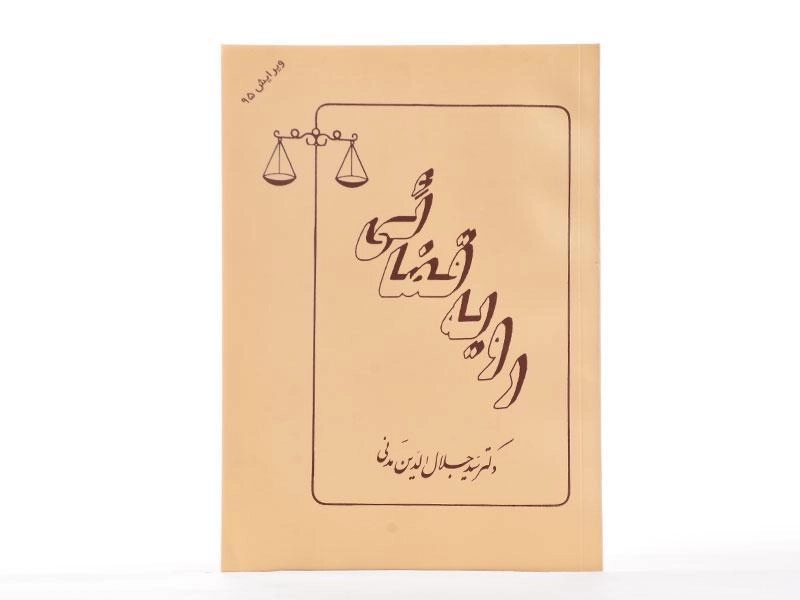 ویرایش ۹۵
رویه قضائی
دکتر سید جلال الدین مدنی